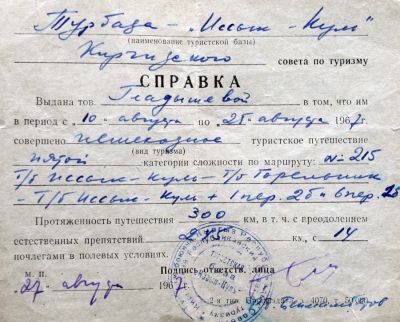 Турбаза - „Иссык-Куль"
(наименование туристской базы)
Киргизского совета по туризму
СПРАВКА
Выдана тов. Гладышевой в том, что им
в период с 10 - августа по 25 - августа 1967г
совершено пешеходное туристское путешествие
(вид туризма)
пятой категории сложности по маршруту: № 215
Т/б Иссык-Куль - Т/б Горельник
- Т/б Иссык-Куль + 1 пер. 2б
Протяженность путешествия 300 км, в т. ч. с преодолением
естественных препятствий км., с 14
ночлегами в полевых условиях.
М. П. Подпись ответств. лица
27 - августа 1967г